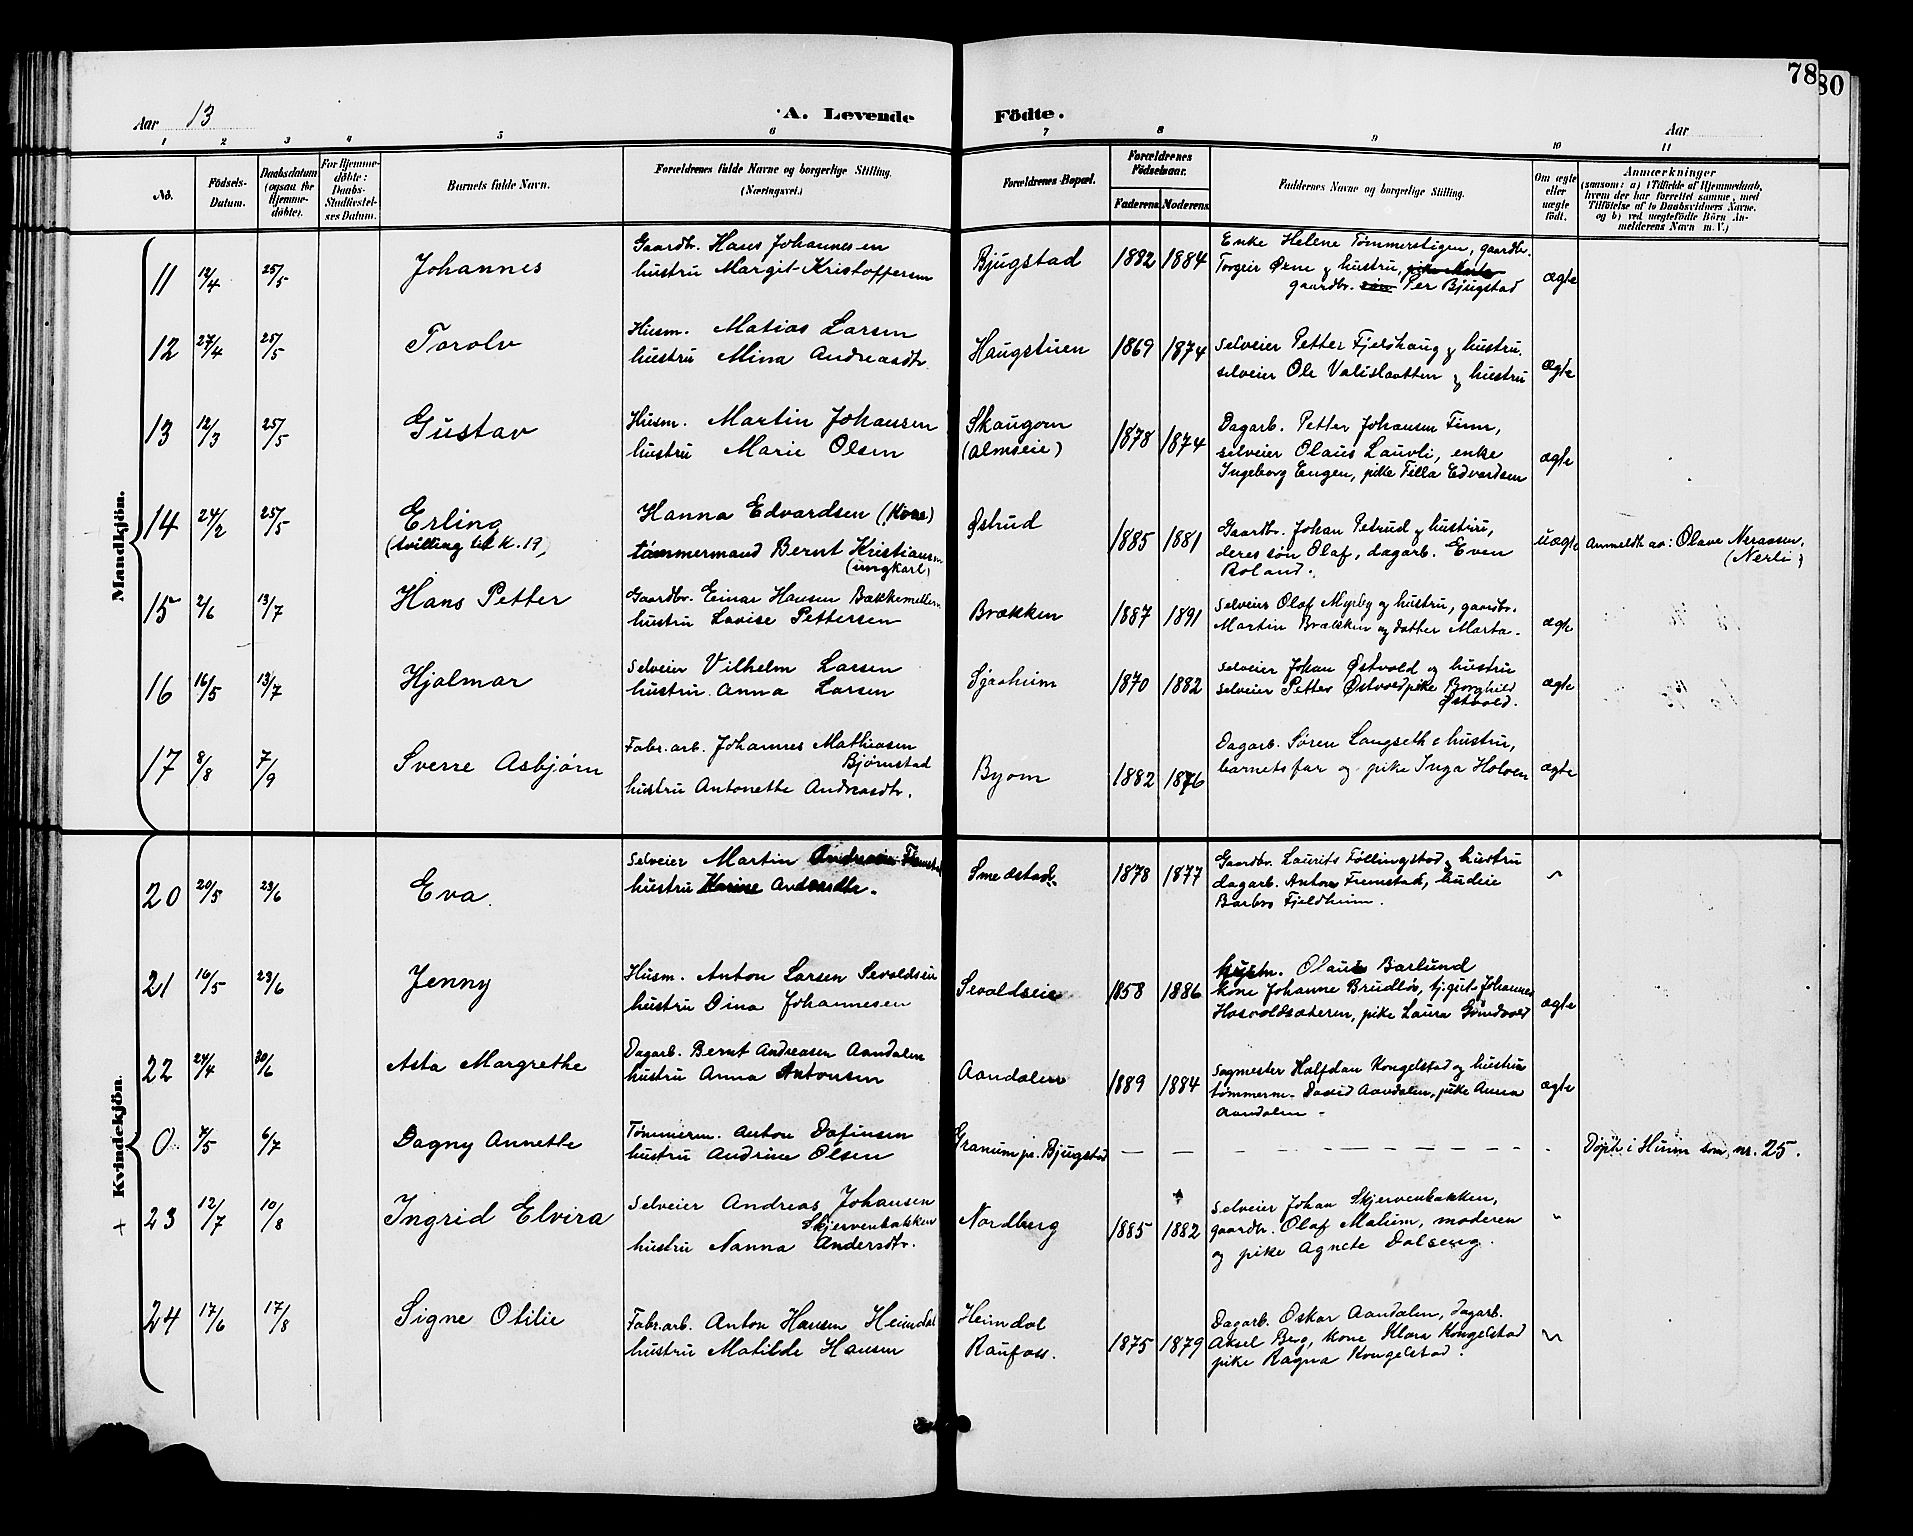 78
80
Aar 13
A. Levende Födte.
Aar
1 2 3 4 5 6 7 8 9 10 11
No.
Födsels-Datum.
Daabsdatum (ogsaa for Hjemme-döbte).
For Hjemme-döbte: Daabs-Stadfæstel-ses Datum.
Barnets fulde Navn.
Forældrenes fulde Navne og borgerlige Stilling. (Næringsvei.)
Forældrenes Bopæl.
Forældrenes Födselsaar.
Faderens. Moderens.
Faddernes Navne og borgerlige Stilling.
Om ægte eller uægte födt.
Anmærkninger
(saasom: a) i Tilfælde af Hjemmedaab,
hvem der har forrettet samme, med
Tilföielse af to Daabsvidners Navne.
og b) ved uægtefödte Börn An-
melderens Navn m. V.)
Mandkjön.
11 12/4 25/5 Johannes
Gaardbr. Hans Johannesen
hustru Margit Kristoffersen
Bjugstad 1882 1884
Enke Helene Tømmerstigen, gaardbr.
Torgeir Ørne og hustru,
gaardbr. Per Bjugstad
ægte
12 27/4 25/5 Torolv
Husm. Matias Larsen
hustru Mina Andreasdtr.
Haugstuen 1869 1874
Selveier Petter Fjeldhaug og hustru.
selveier Ole Valislaatten og hustru
ægte
13 12/3 25/5 Gustav
Husm. Martin Johansen
hustru Marie Olsen
Skaugom
(Almseie) 1878 1874
Dagarb. Petter Johansen Finn,
selveier Olaus Lauvli, enke
Ingeborg Engen, pike Tilla Edvardsen
ægte
14 24/2 25/5 Erling
(tvilling til K. 19)
Hanna Edvardsen (Kone)
tømmermand Bernt Kristiansen
(ungkarl)
Østrud 1885 1881
Gaardbr. Johan Petrud og hustru,
deres søn Olaf, dagarb. Even
Roland.
uægte
Anmeldt av: Olave Neraasen,
(Nerli)
15 2/6 13/7 Hans Petter
Gaardbr. Einar Hansen Bakkemellem
hustru Lovise Pettersen
Brækken 1887 1891
Selveier Olaf Myrby og hustru, gaardbr.
Martin Brækken og datter Marta.
ægte
16 16/5 13/7 Hjalmar
Selveier Vilhelm Larsen
hustru Anna Larsen
Sjaaheim 1870 1882
Selveier Johan Østvold og hustru
selveier Petter Østvold pike Borghild
Østvold.
ægte
17 8/8 7/9 Sverre Asbjørn
Fabr.arb. Johannes Mathiasen
Bjørnstad
hustru Antonette Andreasdtr.
Byom 1882 1876
Dagarb. Søren Langseth o hustru,
barnets far og pike Inga Holven
ægte
Kvindekjön.
20 20/5 23/6 Eva.
Selveier Martin Andreasen
hustru Karine
Smedstad 1878 1877
Gaardbr. Laurits Føllingstad og hustru
dagarb. Anton Fremstad, budeie
Barbro Fjeldheim.
"
21 16/5 23/6 Jenny
Husm. Anton Larsen Sevaldseie
hustru Dina Johannesen
Sevaldseie 1858 1886
husm. Olaus Barlund
kone Johanne Brudløs, tj.gut Johannes
Hasvoldsæteren, pike Laura Grindvold
ægte
22 24/4 20/6 Asta Margrethe
Dagarb. Bernt Andreasen Aandalen
hustru Anna Antonsen
Aandalen 1889 1884
Sagmester Halfdan Kongelstad og hustru
tømmerm. David Aandalen, pike Anna
Aandalen -
ægte
0 7/5 6/7 Dagny Annette
Tømmerm. Anton Dafinsen
hustru Andrine Olsen
Granum pr. Bjugstad — — — — — — — —
Døpt i Hunn som nr. 25.
+ 23 12/7 10/8 Ingrid Elvira
Selveier Andreas Johansen
Skjervenbakken
hustru Nanna Andersdtr.
Nordberg 1885 1882
Selveier Johan Skjervenbakken,
gaardbr. Olaf Mælum, moderen
og pike Agnete Dalseng.
"
24 17/6 17/8 Signe Otilie
Fabr.arb. Anton Hansen Heimdal
hustru Matilde Hansen
Heimdal
Raufoss. 1875 1879
Dagarb. Oskar Aandalen, dagarb.
Aksel Berg, kone Klara Kongelstad
pike Ragna Kongelstad.
"